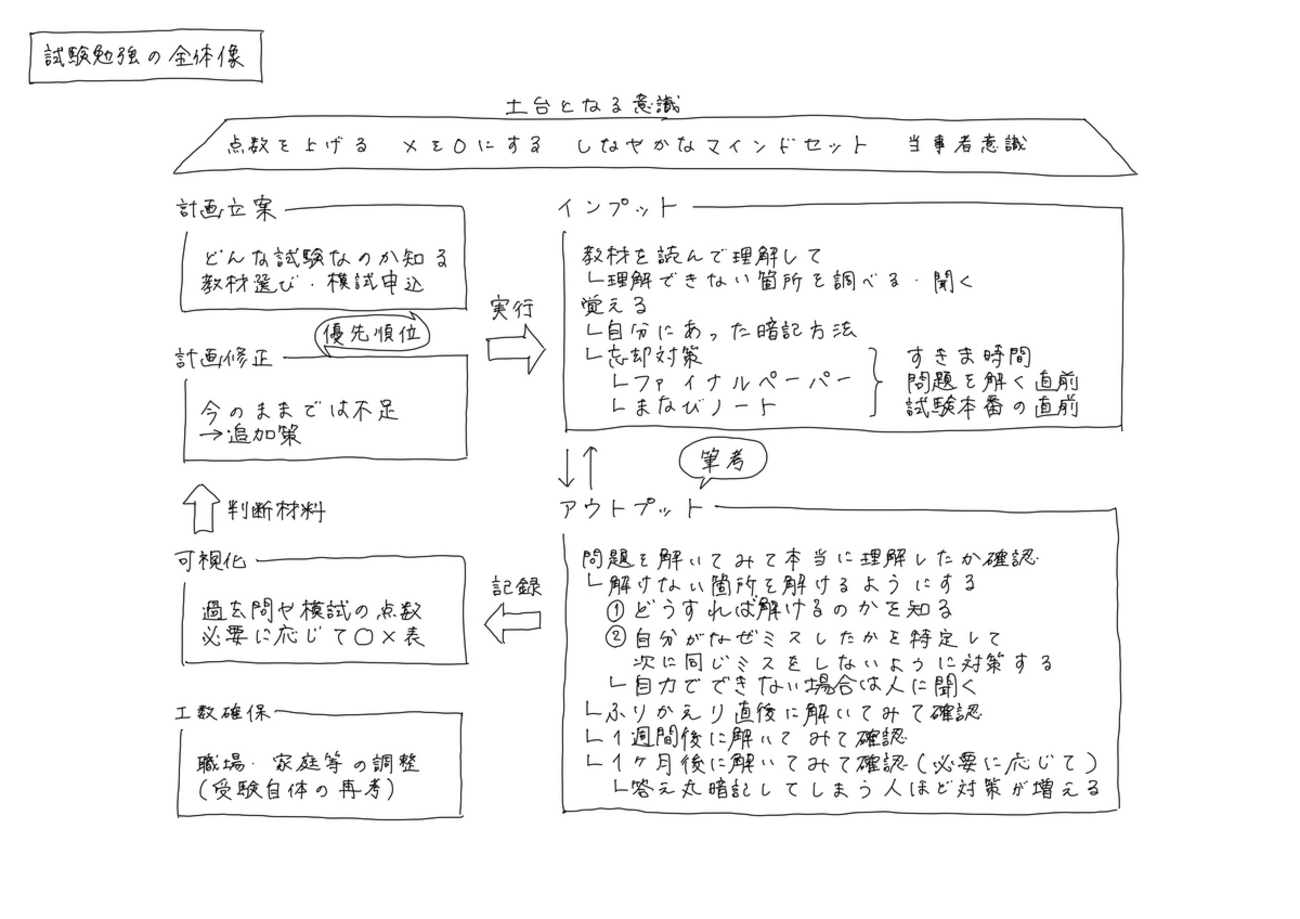 試験勉強の全体像
土台となる意識
点数を上げる ×を○にする しなやかなマインドセット 当事者意識
計画立案
どんな試験なのか知る
教材選び・模試申込
優先順位
計画修正
今のままでは不足
→追加策
判断材料
可視化
過去問や模試の点数
必要に応じて○×表
工数確保
職場・家庭等の調整
(受験自体の再考)
実行
インプット
教材を読んで理解して
└理解できない箇所を調べる・聞く
覚える
└自分にあった暗記方法
└忘却対策
└ファイナルペーパー
└まなびノート
すきま時間
問題を解く直前
試験本番の直前
筆考
アウトプット
問題を解いてみて本当に理解したか確認
└解けない箇所を解けるようにする
①どうすれば解けるのかを知る
②自分がなぜミスしたかを特定して
次に同じミスをしないように対策する
└自力でできない場合は人に聞く
└ふりかえり直後に解いてみて確認
└1週間後に解いてみて確認
└1ヶ月後に解いてみて確認(必要に応じて)
└答え丸暗記してしまう人ほど対策が増える
記録